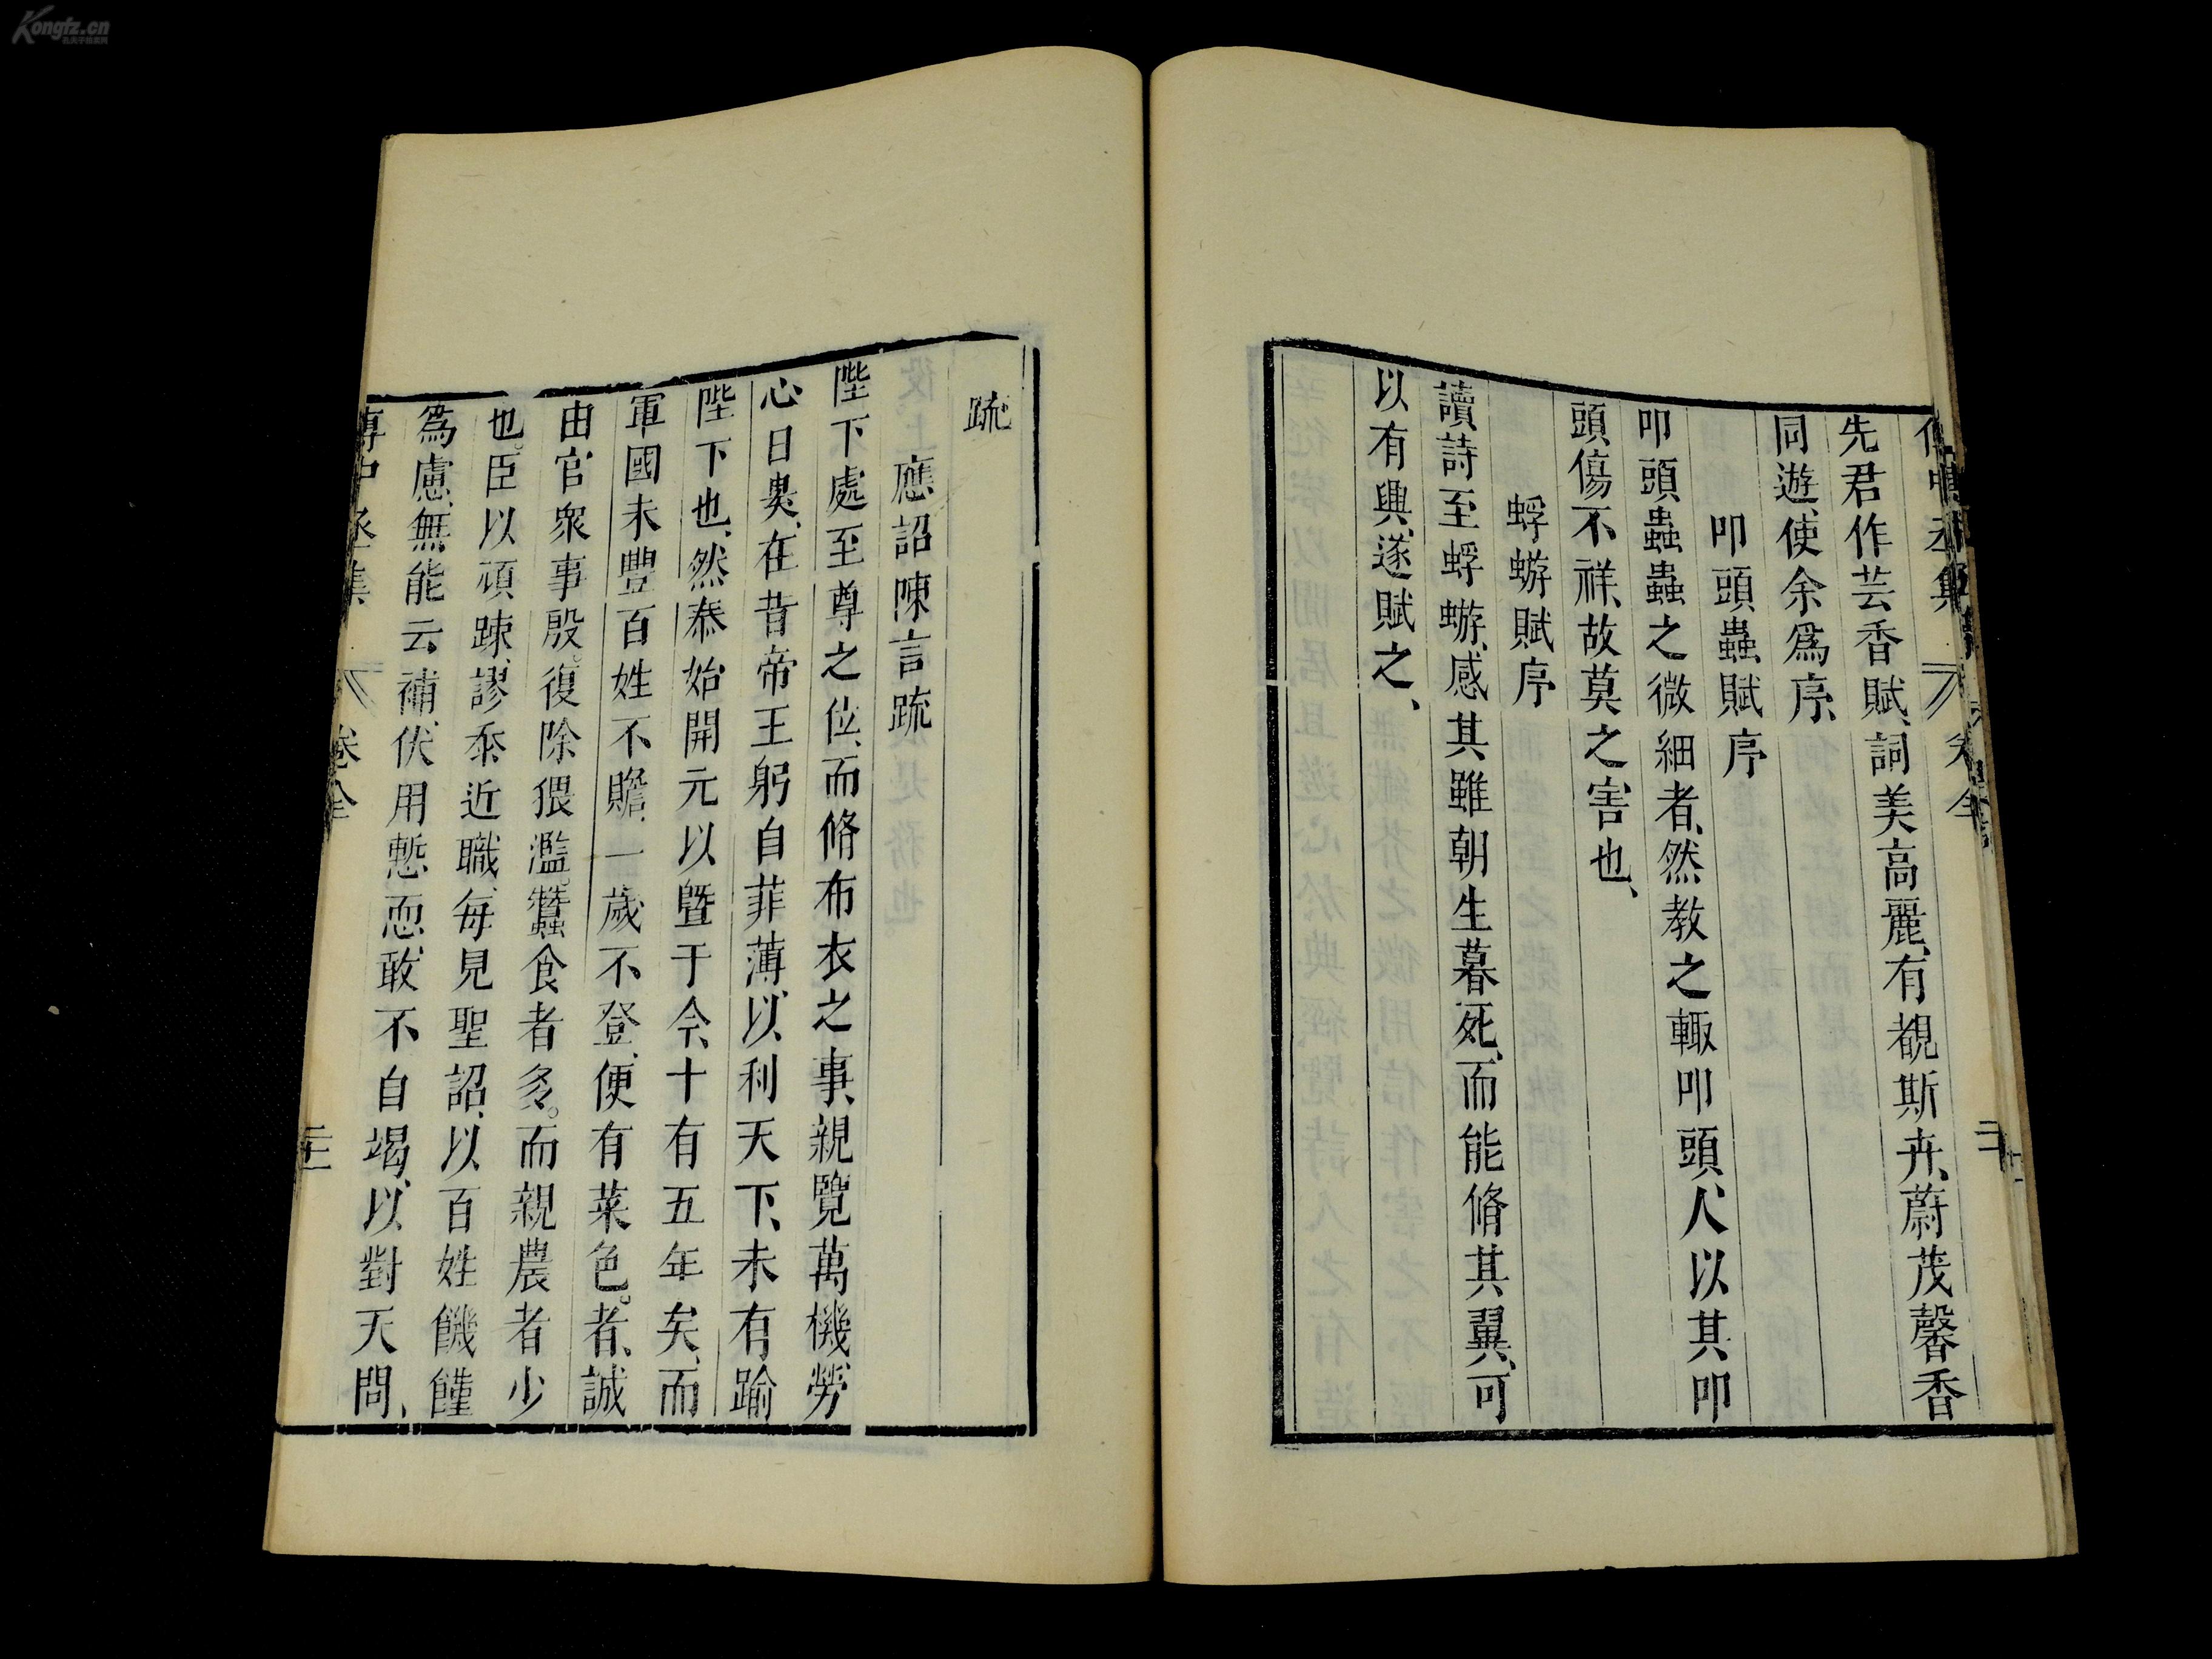 Kongfz.cn
孔夫子拍卖网
先君作芸香賦、詞美高麗、有覩斯卉、蔚茂馨香
同遊、使余爲序、
叩頭蟲賦序
叩頭蟲蟲之微細者、然教之輙叩頭、人以其叩
頭傷不祥、故莫之害也、
蜉蝣賦序
讀詩至蜉蝣、感其雖朝生暮死、而能脩其翼、可
以有興、遂賦之、
疏
應詔陳言疏
陛下處至尊之位、而脩布衣之事、親覽萬機、勞
心日昃、在昔帝王躬自菲薄、以利天下、未有踰
陛下也、然泰始開元以曁于今、十有五年矣、而
軍國未豐、百姓不贍、一歲不登、便有菜色。者、誠
由官衆事殷。復除猥濫。蠶食者多。而親農者少
也。臣以頑踈、謬忝近職、每見聖詔、以百姓饑饉
爲慮、無能云補、伏用慙恧、敢不自竭、以對天問、
傅中丞集
卷全
二十二